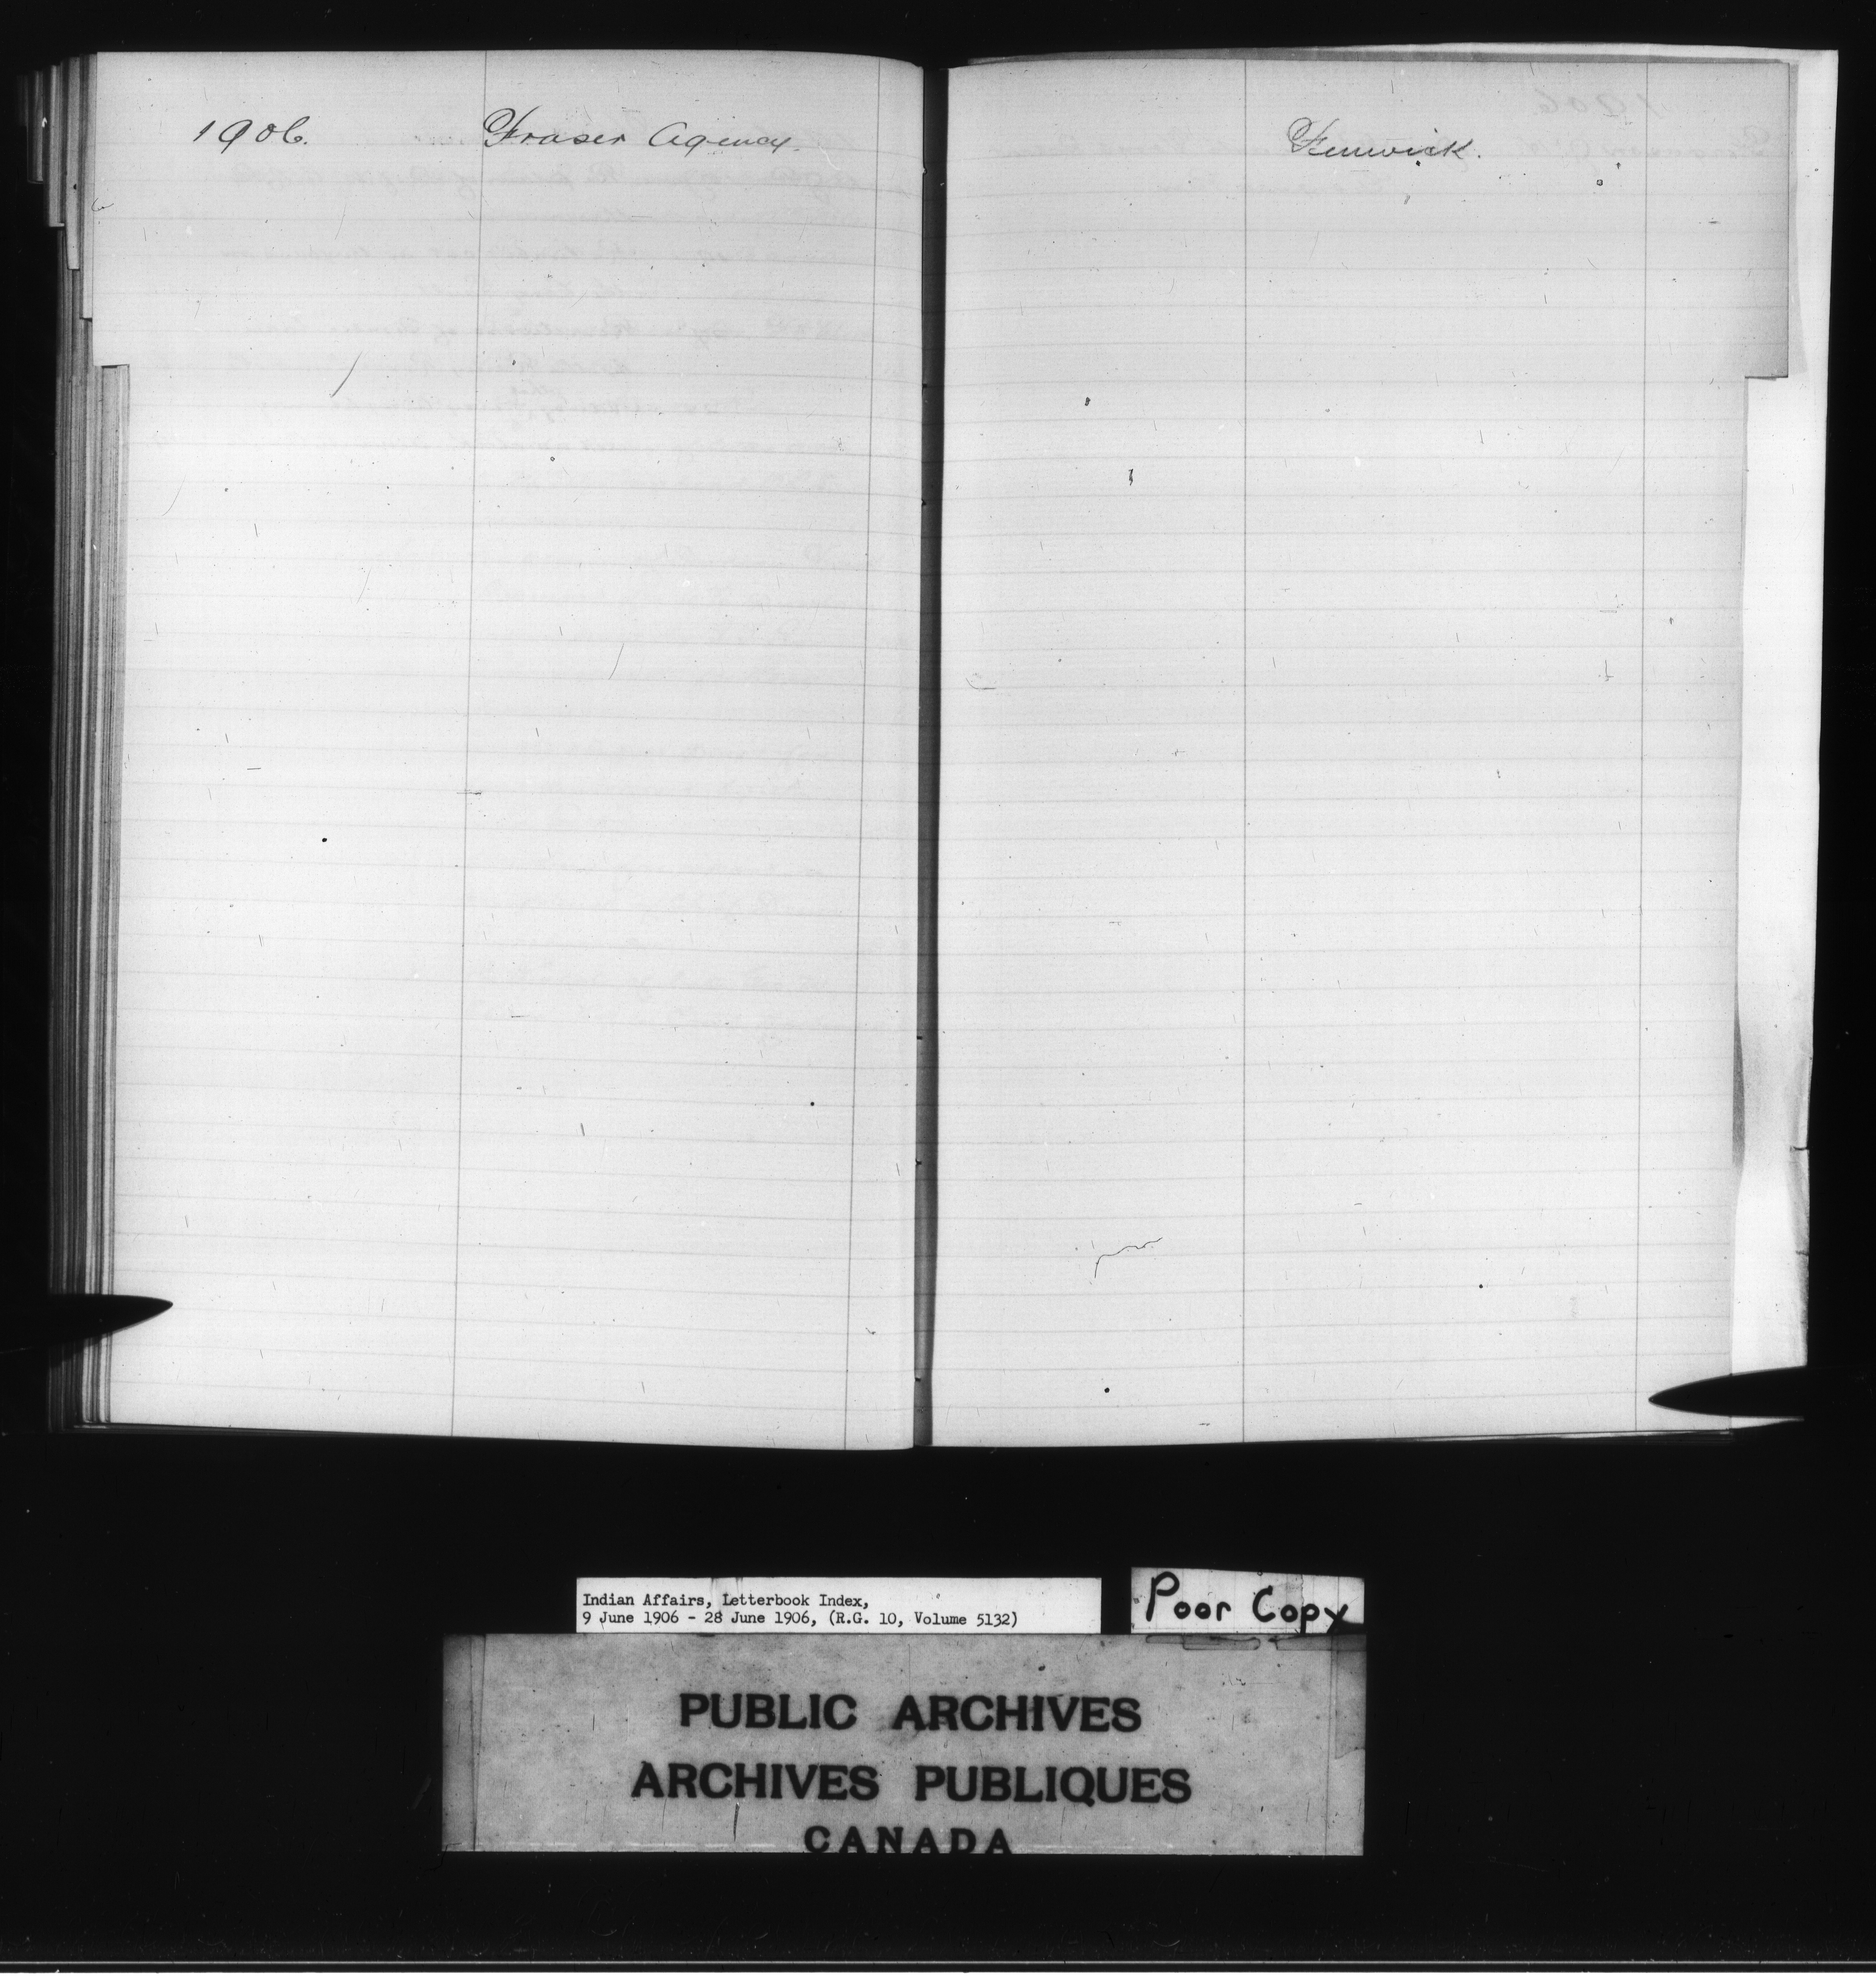 1906. Fraser Agency.
Fenwick.
Indian Affairs, Letterbook Index,
9 June 1906 - 28 June 1906, (R.G. 10, Volume 5132)
Poor Copy
PUBLIC ARCHIVES
ARCHIVES PUBLIQUES
CANADA